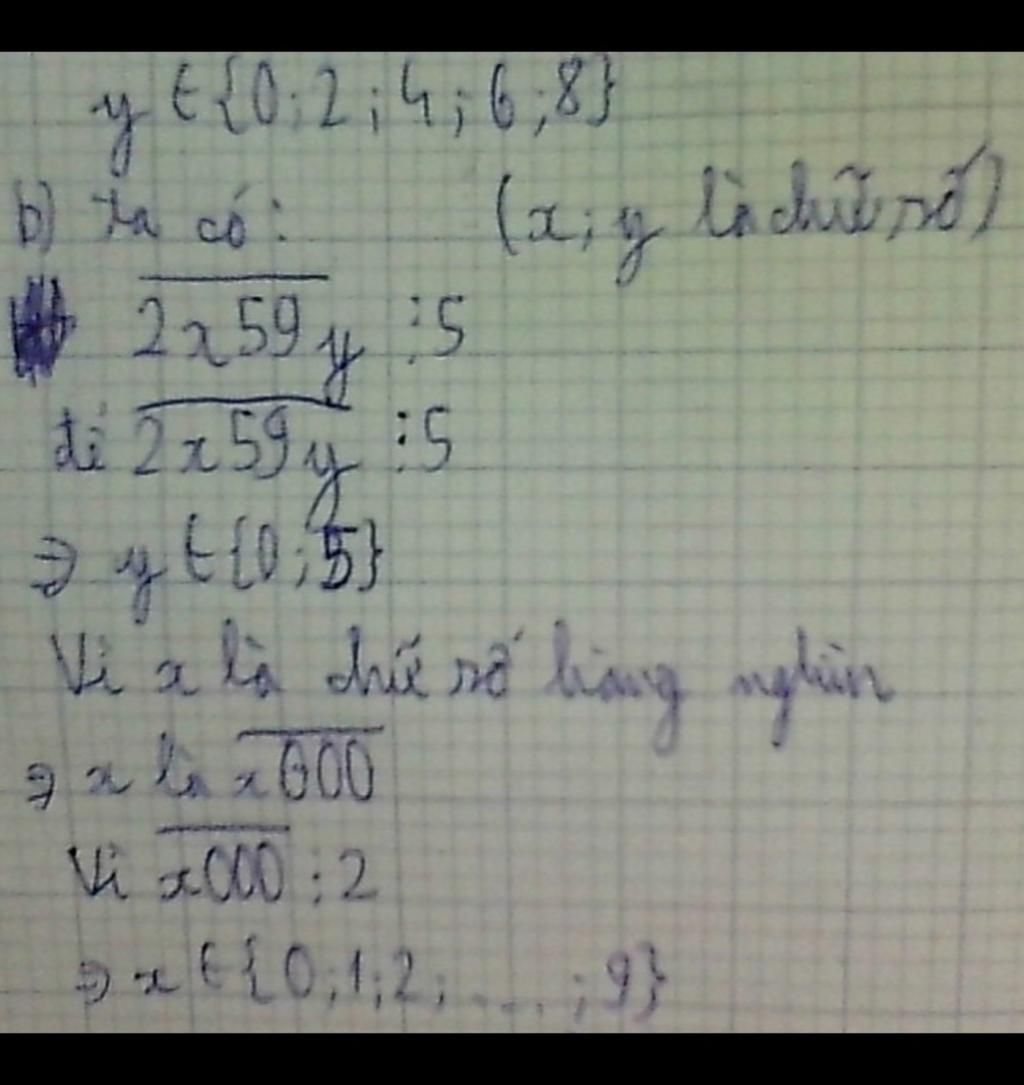 y ∈ {0; 2; 4; 6; 8}
b) Ta có: (x; y là chữ số)
2x59y ⋮ 5
để 2x59y ⋮ 5
⇒ y ∈ {0; 5}
Vì x là chữ số hàng nghìn
⇒ x là x000
Vì x000 ⋮ 2
⇒ x ∈ {0; 1; 2; ... ; 9}